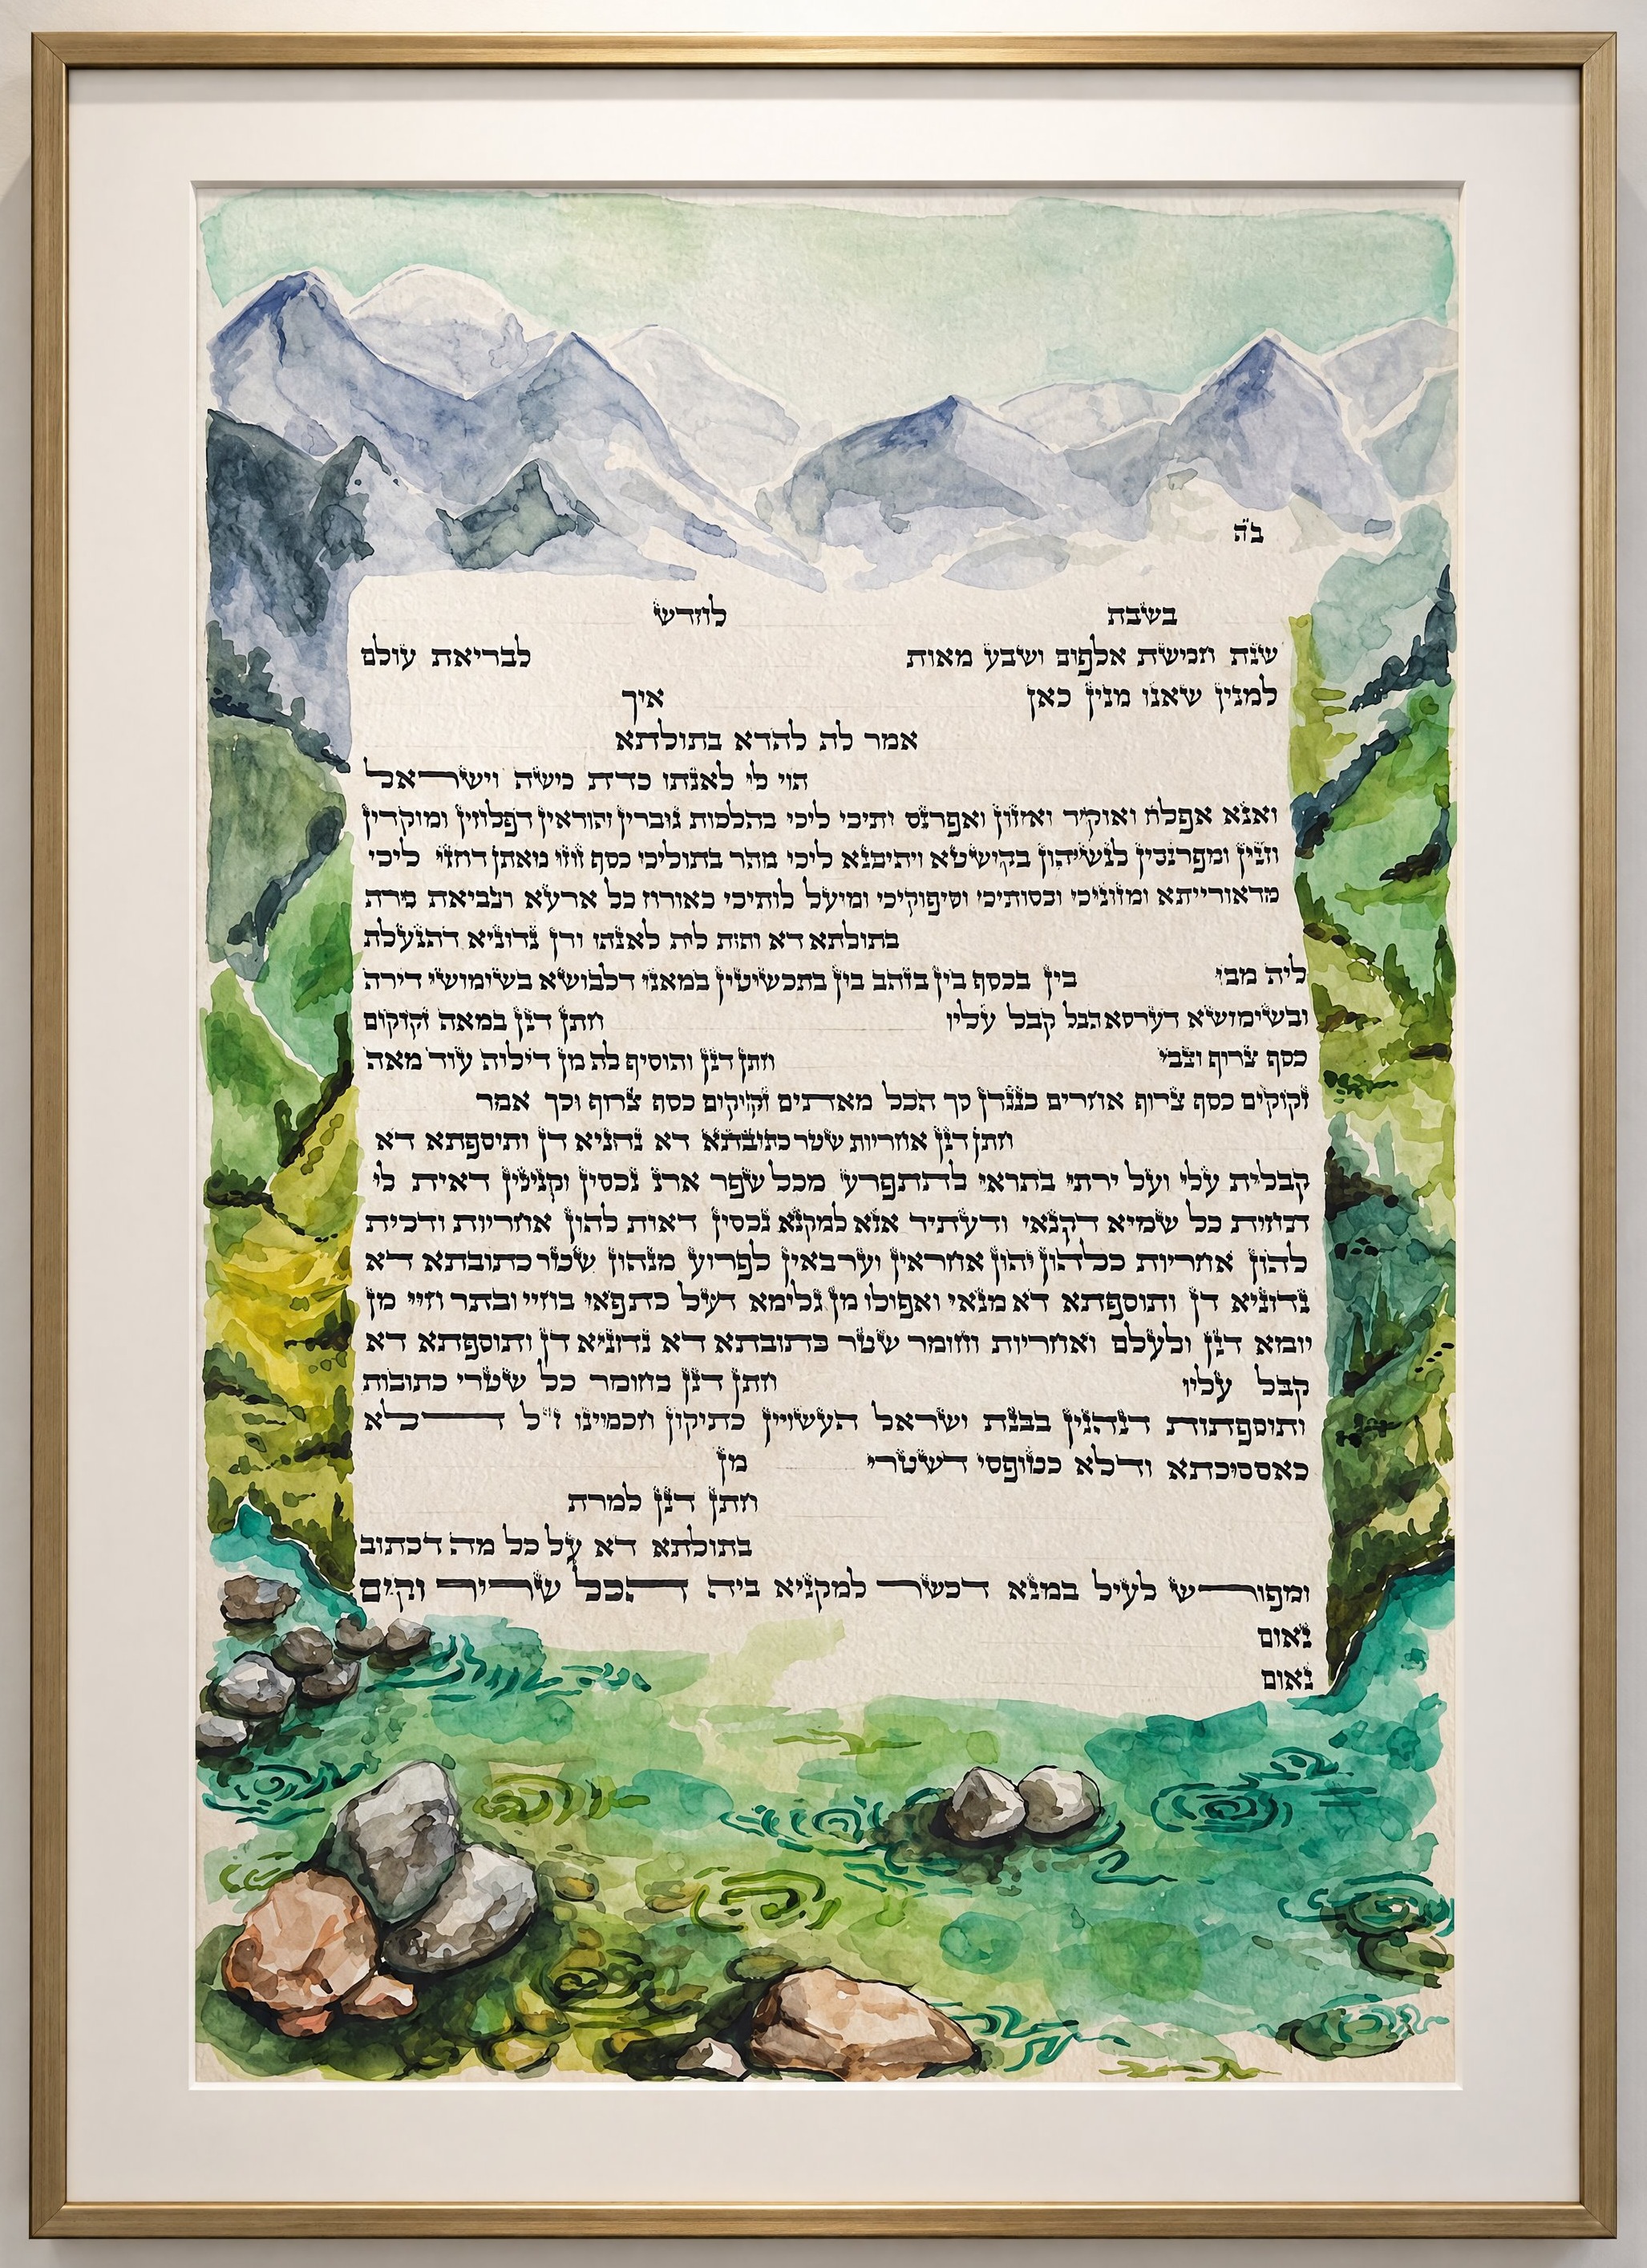 ב"ה
בשבת לחדש
שנת חמישת אלפים ושבע מאות לבריאת עולם
למנין שאנו מנין כאן איך
אמר לה להדא בתולתא
הוי לי לאנתו כדת משה וישראל
ואנא אפלח ואוקיר ואיזון ואפרנס יתיכי ליכי בהלכות גוברין יהודאין דפלחין ומוקרין
וזנין ומפרנסין לנשיהון בקושטא ויהיבנא ליכי מהר בתוליכי כסף זוזי מאתן דחזי ליכי
מדאורייתא ומזוניכי וכסותיכי וסיפוקיכי ומיעל לותיכי כאורח כל ארעא וצביאת מרת
בתולתא דא והות לה לאנתו ודן נדוניא דהנעלת
ליה מבי בין בכסף בין בזהב בין בתכשיטין במאני דלבושא בשימושי דירה
ובשימושא דערסא הכל קבל עליו חתן דנן במאה זקוקים
כסף צרוף וצבי חתן דנן והוסיף לה מן דיליה עוד מאה
זקוקים כסף צרוף אחרים כנגדן סך הכל מאתים זקוקים כסף צרוף וכך אמר
חתן דנן אחריות שטר כתובתא דא נדוניא דן ותוספתא דא
קבלית עלי ועל ירתי בתראי להתפרע מכל שפר ארג נכסין וקנינין דאית לי
תחות כל שמיא דקנאי ודעתיד אנא למקנא נכסין דאית להון אחריות ודלית
להון אחריות כלהון יהון אחראין וערבאין לפרוע מנהון שטר כתובתא דא
נדוניא דן ותוספתא דא מנאי ואפילו מן גלימא דעל כתפאי בחיי ובתר חיי מן
יומא דנן ולעלם ואחריות וחומר שטר כתובתא דא נדוניא דן ותוספתא דא
קבל עליו חתן דנן כחומר כל שטרי כתובות
ותוספתות דנהגין בבנת ישראל העשויין כתיקון חכמינו ז"ל דלא
כאסמכתא ודלא כטופסי דשטרי מן
חתן דנן למרת
בתולתא דא על כל מה דכתוב
ומפורש לעיל במנא דכשר למקניא ביה הכל שריר וקים
נאום
נאום